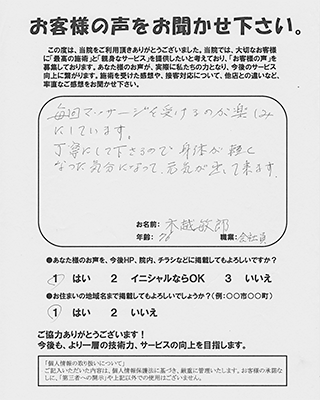 お客様の声をお聞かせ下さい。
この度は、当院をご利用頂きありがとうございました。当院では、大切なお客様
に「最高の施術」と「親身なサービス」を提供したいと考えており、「お客様の声」を
募集しております。あなた様のお声が、実際に私たちの力となり、今後のサービス
向上に繋がります。施術を受けた感想や、接客対応について、他店との違いなど、
率直なご感想をお聞かせ下さい。
毎回マッサージを受けるのが楽しみ
にしています。
丁寧にして下さるので身体が軽く
なった気分になって、元気が出て来ます。
お名前: 木越敏郎
年齢: 76 職業: 会社員
●あなた様のお声を、今後HP、院内、チラシなどに掲載してもよろしいですか?
1 はい 2 イニシャルならOK 3 いいえ
●お住まいの地域名まで掲載してもよろしいでしょうか?(例:〇〇市〇〇町)
1 はい 2 いいえ
ご協力ありがとうございます!
今後も、より一層の技術力、サービスの向上を目指します。
「個人情報の取り扱いについて」
ご記入いただいた内容は、個人情報保護法に基づき、厳重に管理いたします。お客様の承諾な
しに、「第三者への開示」や上記以外での使用はございません。